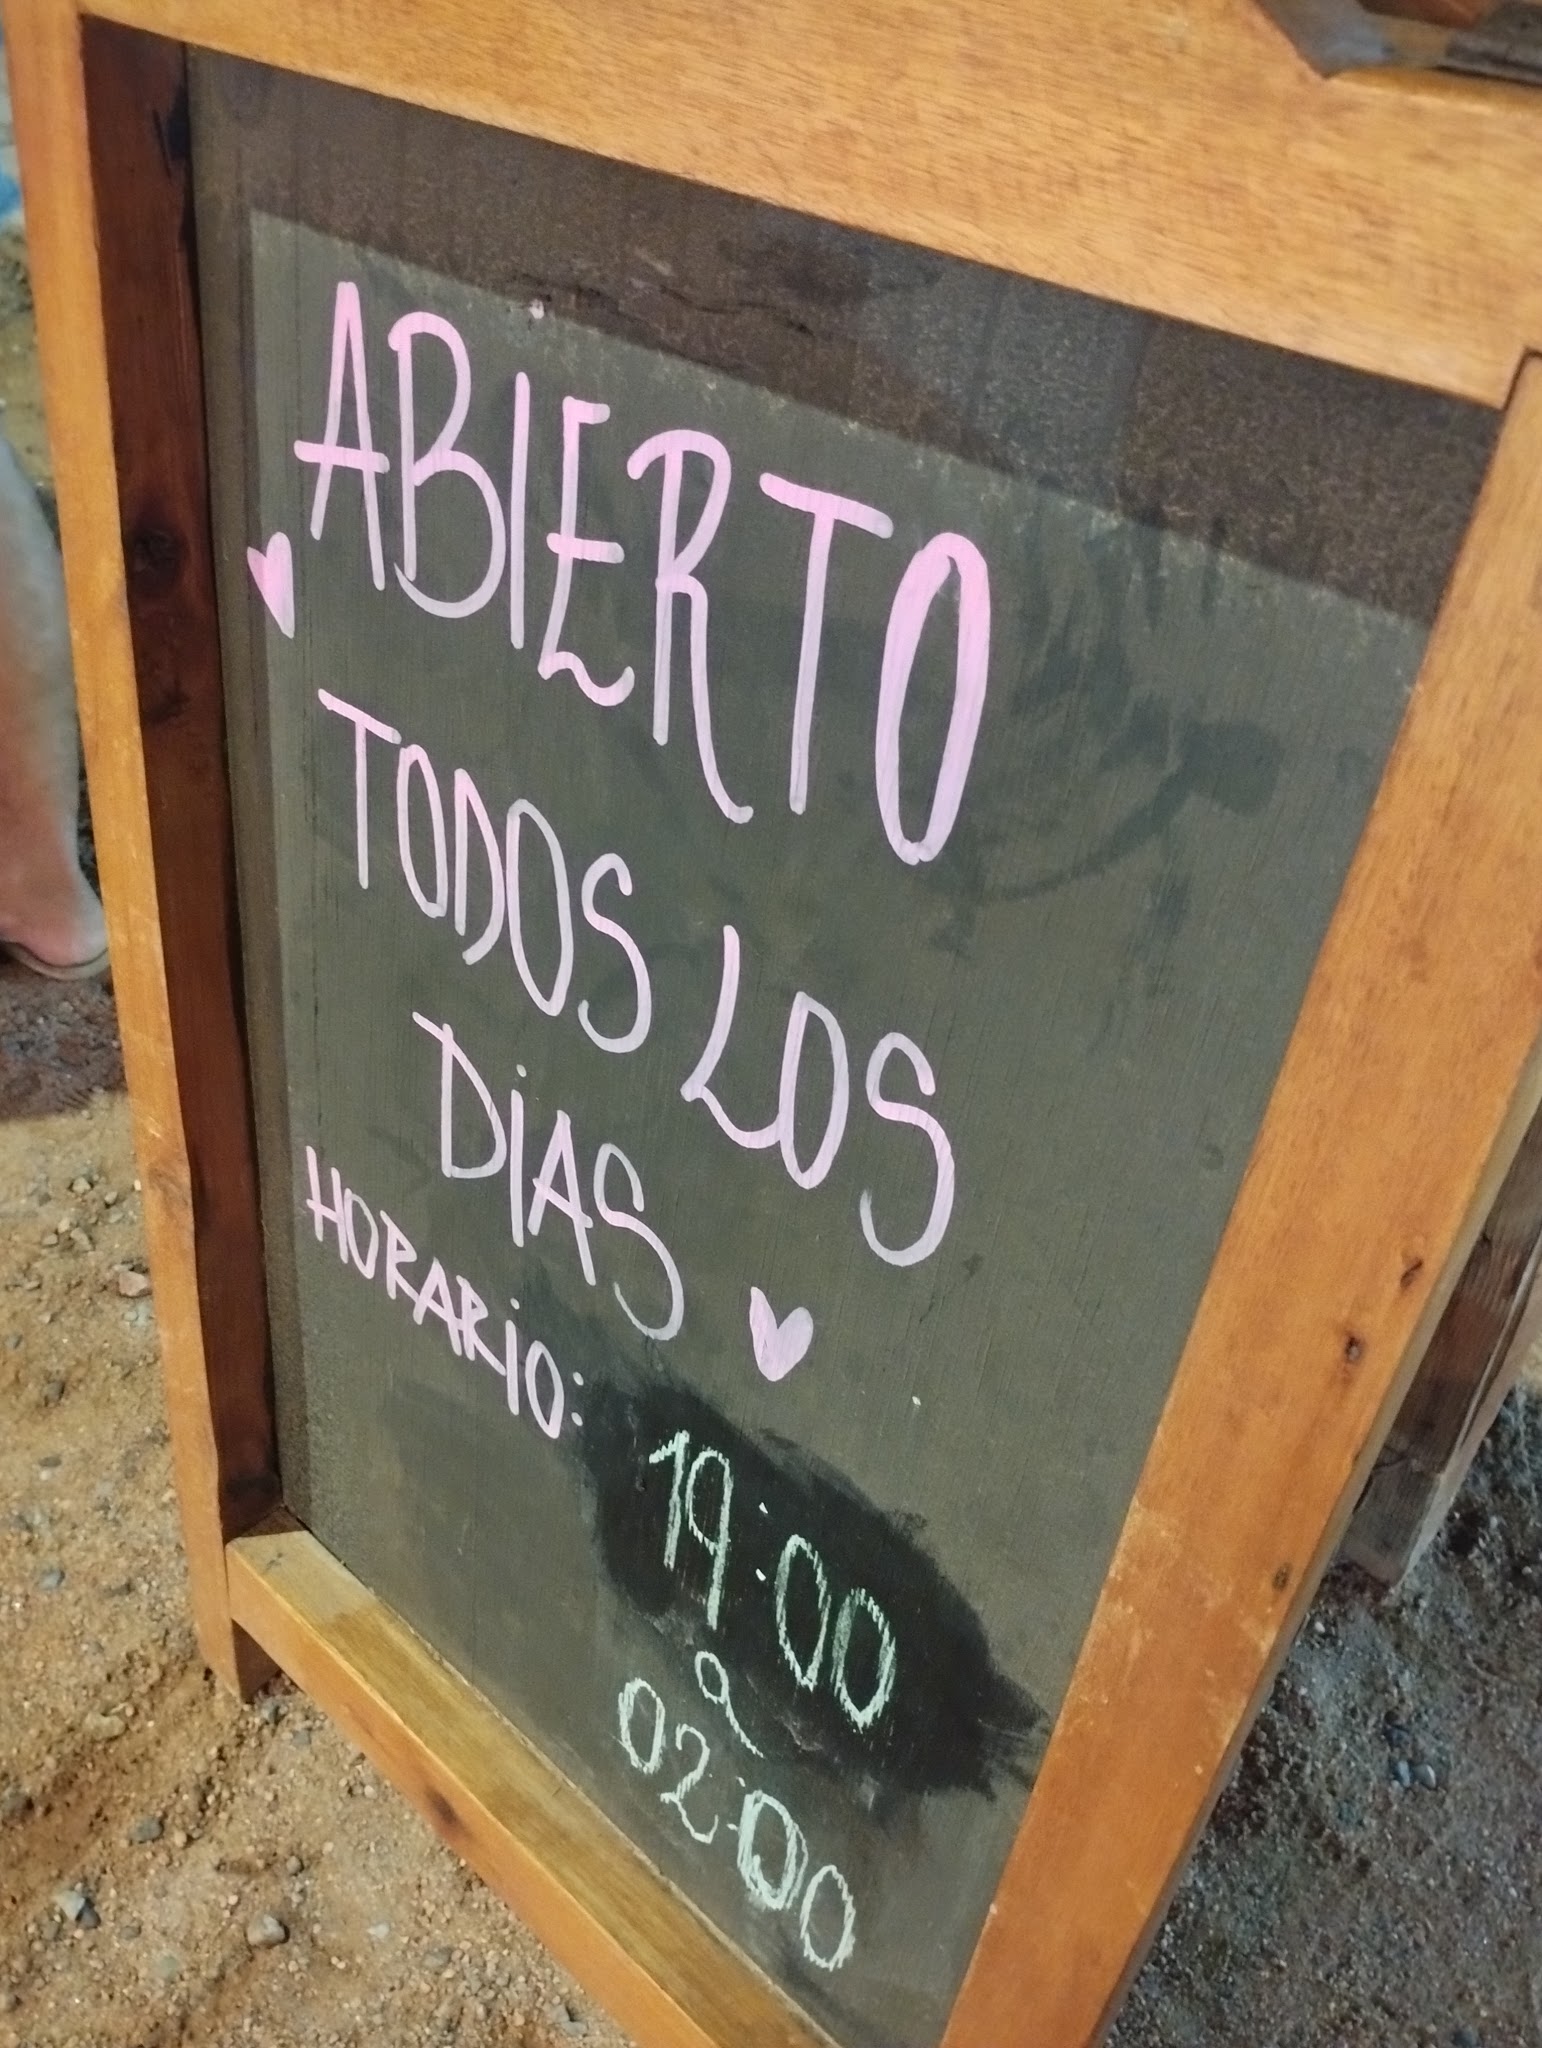 ABIERTO
TODOS LOS
DIAS
HORARIO:
19:00
a
02:00